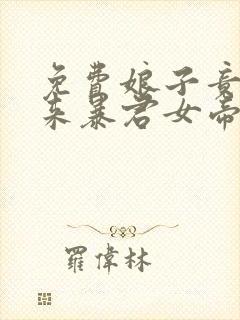 免費娘子竟
来暴君女帝
羅偉林